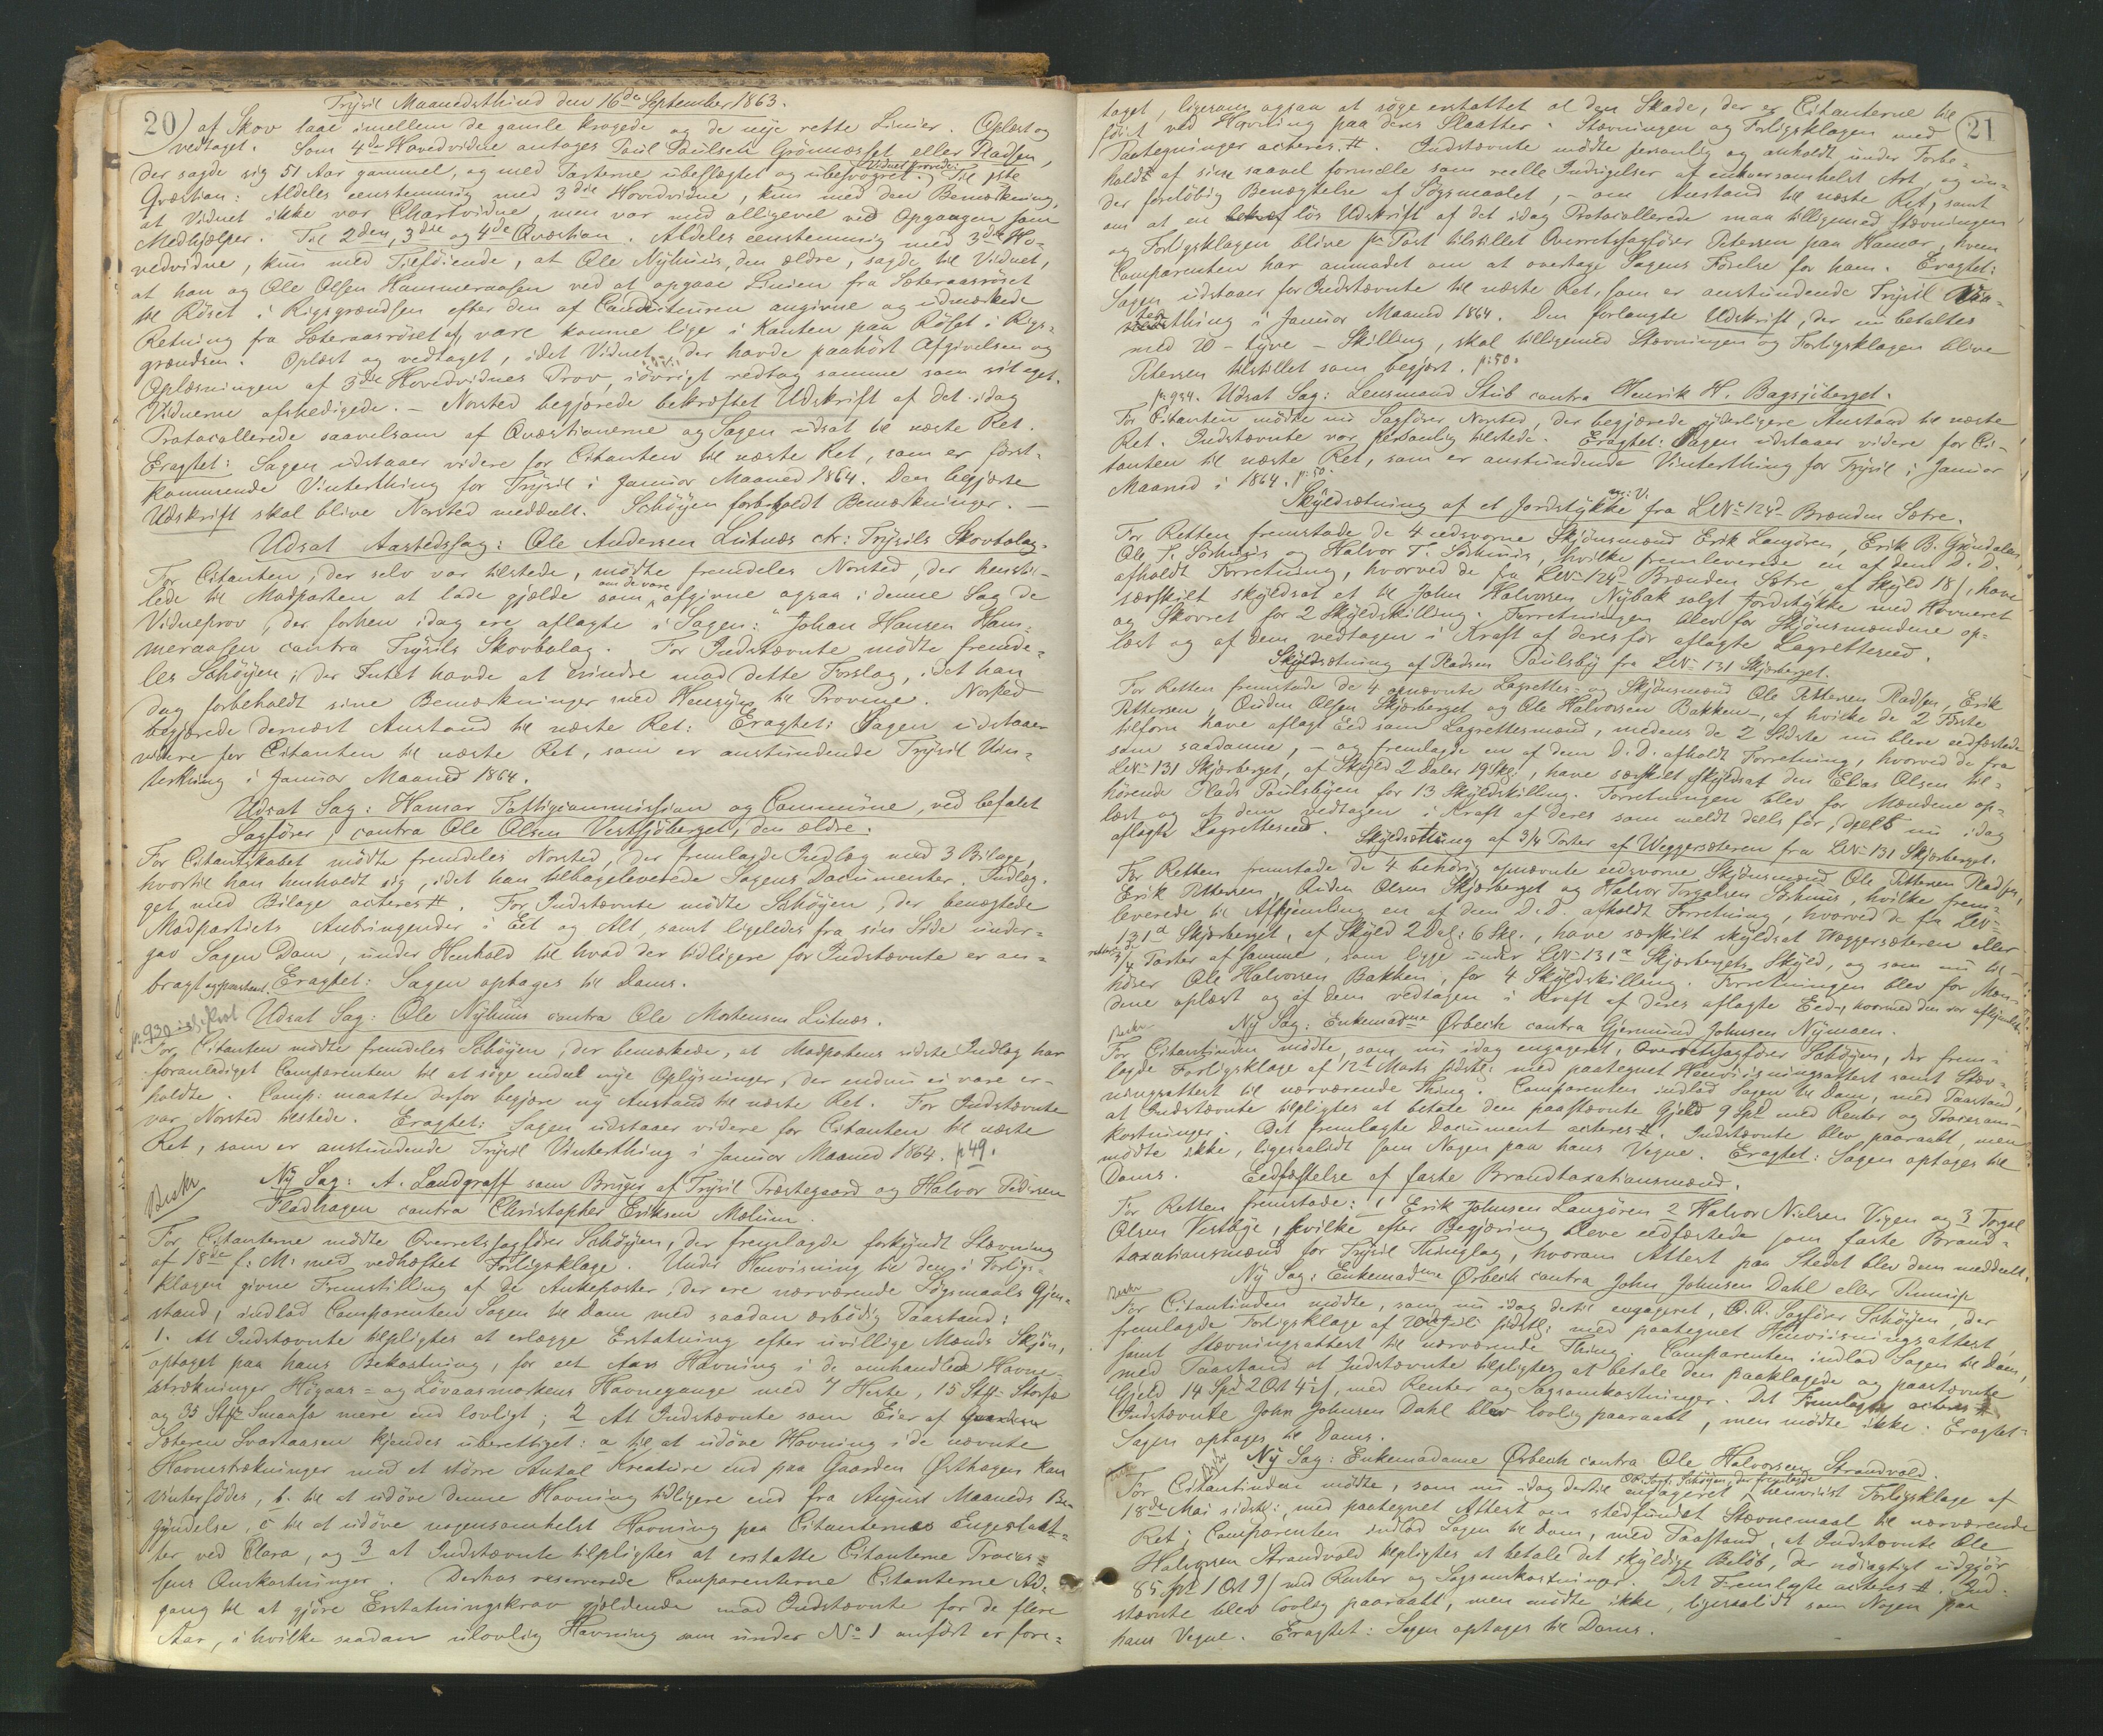 Trysil Maanedsthind den 16de September 1863.
20) af Skov laae imellem de gamle krogede og de nye rette Linier. Oplæst og
vedtaget. Som 4de Hovedvidne antages Poul Poulsen Grönnæsset eller Pladsen,
der sagde sig 51 Aar gammel, og med Parterne ubeslægtet og ubesvogret. Vidnet provede: Til 1ste
Qvæstion: Aldeles eenstemmig med 3die Hovedvidne, kun med den Bemærkning,
at Vidnet ikke var Chartvidne, men var med alligevel ved Opgangen som
Medhjælper. Til 2den, 3die og 4de Qvæstion. Aldeles eenstemmig med 3die Ho-
vedvidne, kun med Tilføiende, at Ole Nyhuus, den ældre, sagde til Vidnet,
at han og Ole Olsen Hammeraasen ved at opgaae Linien fra Sæteraasröset
til Röset i Rigsgrændsen efter den af Conducteuren angivne og udmærkede
Retning fra Sæteraasröset af, vare komne lige i Kanten paa Röset i Rigs-
grændsen. Oplæst og vedtaget, idet Vidnet, der havde paahört Afgivelsen og
Oplæsningen af 3die Hovedvidnes Prov, iövrigt vedtog samme som sit eget.
Vidnerne afskedigede. – Norsted begjærede bekræftet Udskrift af det idag
Protocollerede saavelsom af Qvæstionerne og Sagen udsat til næste Ret.
Eragtet: Sagen udstaaer videre for Citanten til næste Ret, som er först-
kommende Vinterthing for Trysil i Januar Maaned 1864. Den begjærte
Udskrift skal blive Norsted meddeelt. Schöyen forbeholdt Bemærkninger. –
Udsat Aastedssag: Ole Andersen Lutnæs ctr: Trysils Skovbolag.
For Citanten, der selv var tilstede, mödte fremdeles Norsted, der henstil-
lede til Modparten at lade gjælde som om de vare afgivne ogsaa i denne Sag de
Vidneprov, der forhen idag ere aflagte i Sagen: "Johan Hansen Ham-
meraasen contra Trysils Skovbolag. For Indstævnte mödte fremde-
les Schöyen, der Intet havde at erindre mod dette Forslag, idet han
dog forbeholdt sine Bemærkninger med Hensyn til Provene. Norsted
begjærede dernæst Anstand til næste Ret: Eragtet: Sagen udstaaer
videre for Citanten til næste Ret, som er anstundende Trysil Vin-
terthing i Januar Maaned 1864.
Udsat Sag: Hamar Fattigcommission og Commune, ved befalet
Sagförer, contra Ole Olsen Vestsjöberget, den ældre.
For Citantskabet mödte fremdeles Norsted, der fremlagde Indlæg med 3 Bilage,
hvortil han henholdt sig, idet han tilbageleverede Sagens Documenter. Indlæg-
get med Bilage acteres #. For Indstævnte mödte Schöyen, der benægtede
Modpartiets Anbringender i Eet og Alt, samt ligeledes fra sin Side under-
gav Sagen Dom, under Henhold til hvad der tidligere for Indstævnte er an-
bragt og paastaaet. Eragtet: Sagen optages til Doms.
Udsat Sag: Ole Nyhuus contra Ole Mortensen Lutnæs.
For Citanten mödte fremdeles Schöyen, der bemærkede, at Modpartens sidste Indlæg har
foranlediget Comparenten til at söge endeel nye Oplysninger, der endnu ei vare er-
holdte. Comp: maatte derfor begjære ny Anstand til næste Ret. For Indstævnte
var Norsted tilstede. Eragtet: Sagen udstaaer videre for Citanten til næste
Ret, som er anstundende Trysil Vinterthing i Januar Maaned 1864. p 49.
Beskr
Ny Sag: A. Landgraff som Bruger af Trysil Præstegaard og Halvor Pedersen
Fladhagen contra Christopher Eriksen Mælum.
For Citanterne mödte Overretssagförer Schöyen, der fremlagde forkyndt Stævning
af 18de f: M: med vedhæftet Forligsklage. Under Henvisning til den i Forligs-
klagen givne Fremstilling af de Ankeposter, der ere nærværende Sögsmaals Gjen-
stand, indlod Comparenten Sagen til Dom med saadan ærbödig Paastand:
1. At Indstævnte tilpligtes at erlægge Erstatning efter uvillige Mænds Skjön,
optaget paa hans Bekostning, for eet Aars Havning i de omhandlede Havne-
strækninger Högaas- og Lövaasmarkens Havnegange med 7 Heste, 15 Stk: Storfæ
og 35 Stk: Smaafæ mere end lovligt; 2 At Indstævnte som Eier af
Sæteren Svartaasen kjendes uberettiget: a til at udöve Havning i de nævnte
Havnestrækninger med et större Antal Kreature end paa Gaarden Östhagen kan
vinterfödes, b. til at udöve denne Havning tidligere end fra August Maaneds Be-
gyndelse, c til at udöve nogensomhelst Havning paa Citanternes Engeslaat-
ter ved Elara, og 3 at Indstævnte tilpligtes at erstatte Citanterne Proces-
sens Omkostninger. Derhos reserverede Comparenterne Citanterne Ad-
gang til at gjöre Erstatningskrav gjældende mod Indstævnte for de flere
Aar, i hvilke saadan ulovlig Havning som under No 1 anfört er fore-
21
taget, ligesom ogsaa at söge erstattet al den Skade, der er Citanterne til-
föiet ved Havning paa deres Slaatter. Stævningen og Forligsklagen med
Paategninger acteres. #. Indstævnte mödte personlig og anholdt under Forbe-
hold af sine saavel formelle som reelle Indsigelser af enhversomhelst Art, og un-
der foreløbig Benægtelse af Sögsmaalet, – om Anstand til næste Ret, samt
om at en lös Udskrift af det idag Protocollerede maa tilligemed Stævningen
og Forligsklagen blive pr Post tilstillet Overretssagförer Petersen paa Hamar, hvem
Comparenten har anmodet om at overtage Sagens Förelse for ham. Eragtet:
Sagen udstaaer for Indstævnte til næste Ret, som er anstundende Trysil Vin-
terthing i Januar Maaned 1864. Den forlangte Udskrift, der nu betaltes
med 20 – tyve – Skilling, skal tilligemed Stævningen og Forligsklagen blive
Petersen tilstillet som begjært. p: 50.
p: 934. Udsat Sag: Lensmand Stub contra Henrik H. Bagsjöberget.
For Citanten mödte nu Sagförer Norsted, der begjærede yderligere Anstand til næste
Ret. Indstævnte var personlig tilstede. Eragtet: Sagen udstaaer videre for Ci-
tanten til næste Ret, som er anstundende Vinterthing for Trysil i Januar
Maaned i 1864. p: 50.
Skyldsætning af et Jordstykke m: V. fra LNo 124d Brænden Sætre.
For Retten fremstode de 4 eedsvorne Skjönsmænd Erik Langören, Erik B. Gröndalen,
Ole P. Sörhuus og Halvor T. Sörhuus, hvilke fremleverede en af dem D. D.
afholdt Forretning, hvorved de fra LNo 124d Brænden Sætre, af Skyld 18 ſ, have
særskilt skyldsat et til John Halvorsen Nybak solgt Jordstykke med Havneret
og Skovret for 2 Skyldskilling. Forretningen blev for Skjönsmændene op-
læst og af dem vedtagen i Kraft af deres för aflagte Lagretteseed.
Skyldsætning af Pladsen Paulsby fra LNo 131 Skjærberget.
For Retten fremstode de 4 opnævnte Lagrettes- og Skjönsmænd Ole Pettersen Pladsen, Erik
Pettersen, Ouden Olsen Skjærberget og Ole Halvorsen Bakken –, af hvilke de 2 Förste
tilforn have aflagt Eed som Lagrettesmænd, medens de 2 Sidste nu bleve eedfæstede
som saadanne, – og fremlagde en af dem D. D. afholdt Forretning, hvorved de fra
LNo 131 Skjærberget, af Skyld 2 Daler 19 Skl:, have særskilt skyldsat den Elias Olsen til-
hörende Plads Paulsbyen for 13 Skyldskilling. Forretningen blev for Mændene op-
læst og af dem vedtagen i Kraft af deres som meldt deels för, deels nu idag
aflagte Lagretteseed.
Skyldsætning af 3/4 Parter af Weggersæteren fra LNo 131 Skjærberget.
For Retten fremstode de 4 behörig opnævnte eedsvorne Skjönsmænd Ole Pettersen Pladsen,
Erik Pettersen, Ouden Olsen Skjærberget og Halvor Torgalsen Sörhuus, hvilke frem-
leverede til Afhjemling en af dem D. D. afholdt Forretning, hvorved de fra LNo
131a Skjærberget, af Skyld 2 Dal: 6 Skl., have særskilt skyldsat Wæggersæteren eller
3/4 Parter af samme, som ligge under LNo 131a Skjærbergets Skyld, og som nu til-
hörer Ole Halvorsen Bakken, for 4 Skyldskilling. Forretningen blev for Mæn-
dene oplæst og af dem vedtagen i Kraft af deres aflagte Eed, hvormed den var afhjemlet.
Beskr
Ny Sag: Enkemadme Ørbech contra Gjermund Johnsen Nymoen.
For Citantinden mödte, som nu idag engageret, Overretssagförer Schöyen, der frem-
lagde Forligsklage af 12te Marts sidstl: med paategnet Henviisningsattest samt Stæv-
ningsattest til nærværende Thing. Comparenten indlod Sagen til Dom, med Paastand,
at Indstævnte tilpligtes at betale den paastævnte Gjeld 9 Spd med Renter og Procesom-
kostninger. Det fremlagte Document acteres #. Indstævnte blev paaraabt, men
mödte ikke, ligesaalidt som Nogen paa hans Vegne. Eragtet: Sagen optages til
Doms.
Eedfæstelse af faste Brandtaxationsmænd.
For Retten fremstode: 1 Erik Johnsen Langören 2 Halvor Nielsen Vigen og 3 Torgal
Olsen Vestbye, hvilke efter Begjæring bleve eedfæstede som faste Brand-
taxationsmænd for Trysil Thinglag, hvorom Attest paa Stedet blev dem meddeelt.
Beskr
Ny Sag: Enkemadme Ørbech contra John Johnsen Dahl eller Pinnup
For Citantinden mödte, som nu idag dertil engageret, O. R. Sagförer Schöyen, der
fremlagde Forligsklage af sidstl: med paategnet Henviisningsattest
samt Stævningsattest til nærværende Thing. Comparenten indlod Sagen til Dom,
med Paastand at Indstævnte tilpligtes at betale den paaklagede og paastævnte
Gjeld 14 Spd 2 Ort 4 ſ, med Renter og Sagsomkostninger. Det Fremlagte acteres #
Indstævnte John Johnsen Dahl blev lovlig paaraabt, men mödte ikke. Eragtet:
Sagen optages til Doms.
Ny Sag: Enkemadame Ørbech contra Ole Halvorsen Strandvold.
For Citantinden mödte, som nu idag dertil engageret O. R. Sagf. Schöyen, der fremlagde henviist Forligsklage af
18de Mai sidstl: med paategnet Attest om stedfundet Stævnemaal til nærværende
Ret; Comparenten indlod Sagen til Dom, med Paastand, at Indstævnte Ole
Halvorsen Strandvold tilpligtes at betale det skyldige Belöb, der nöiagtigt udgjör
85 Spd 1 Ort 9 ſ med Renter og Sagsomkostninger. Det Fremlagte acteres #. Ind-
stævnte blev lovlig paaraabt, men mödte ikke, ligesaalidt som Nogen paa
hans Vegne. Eragtet: Sagen optages til Doms.